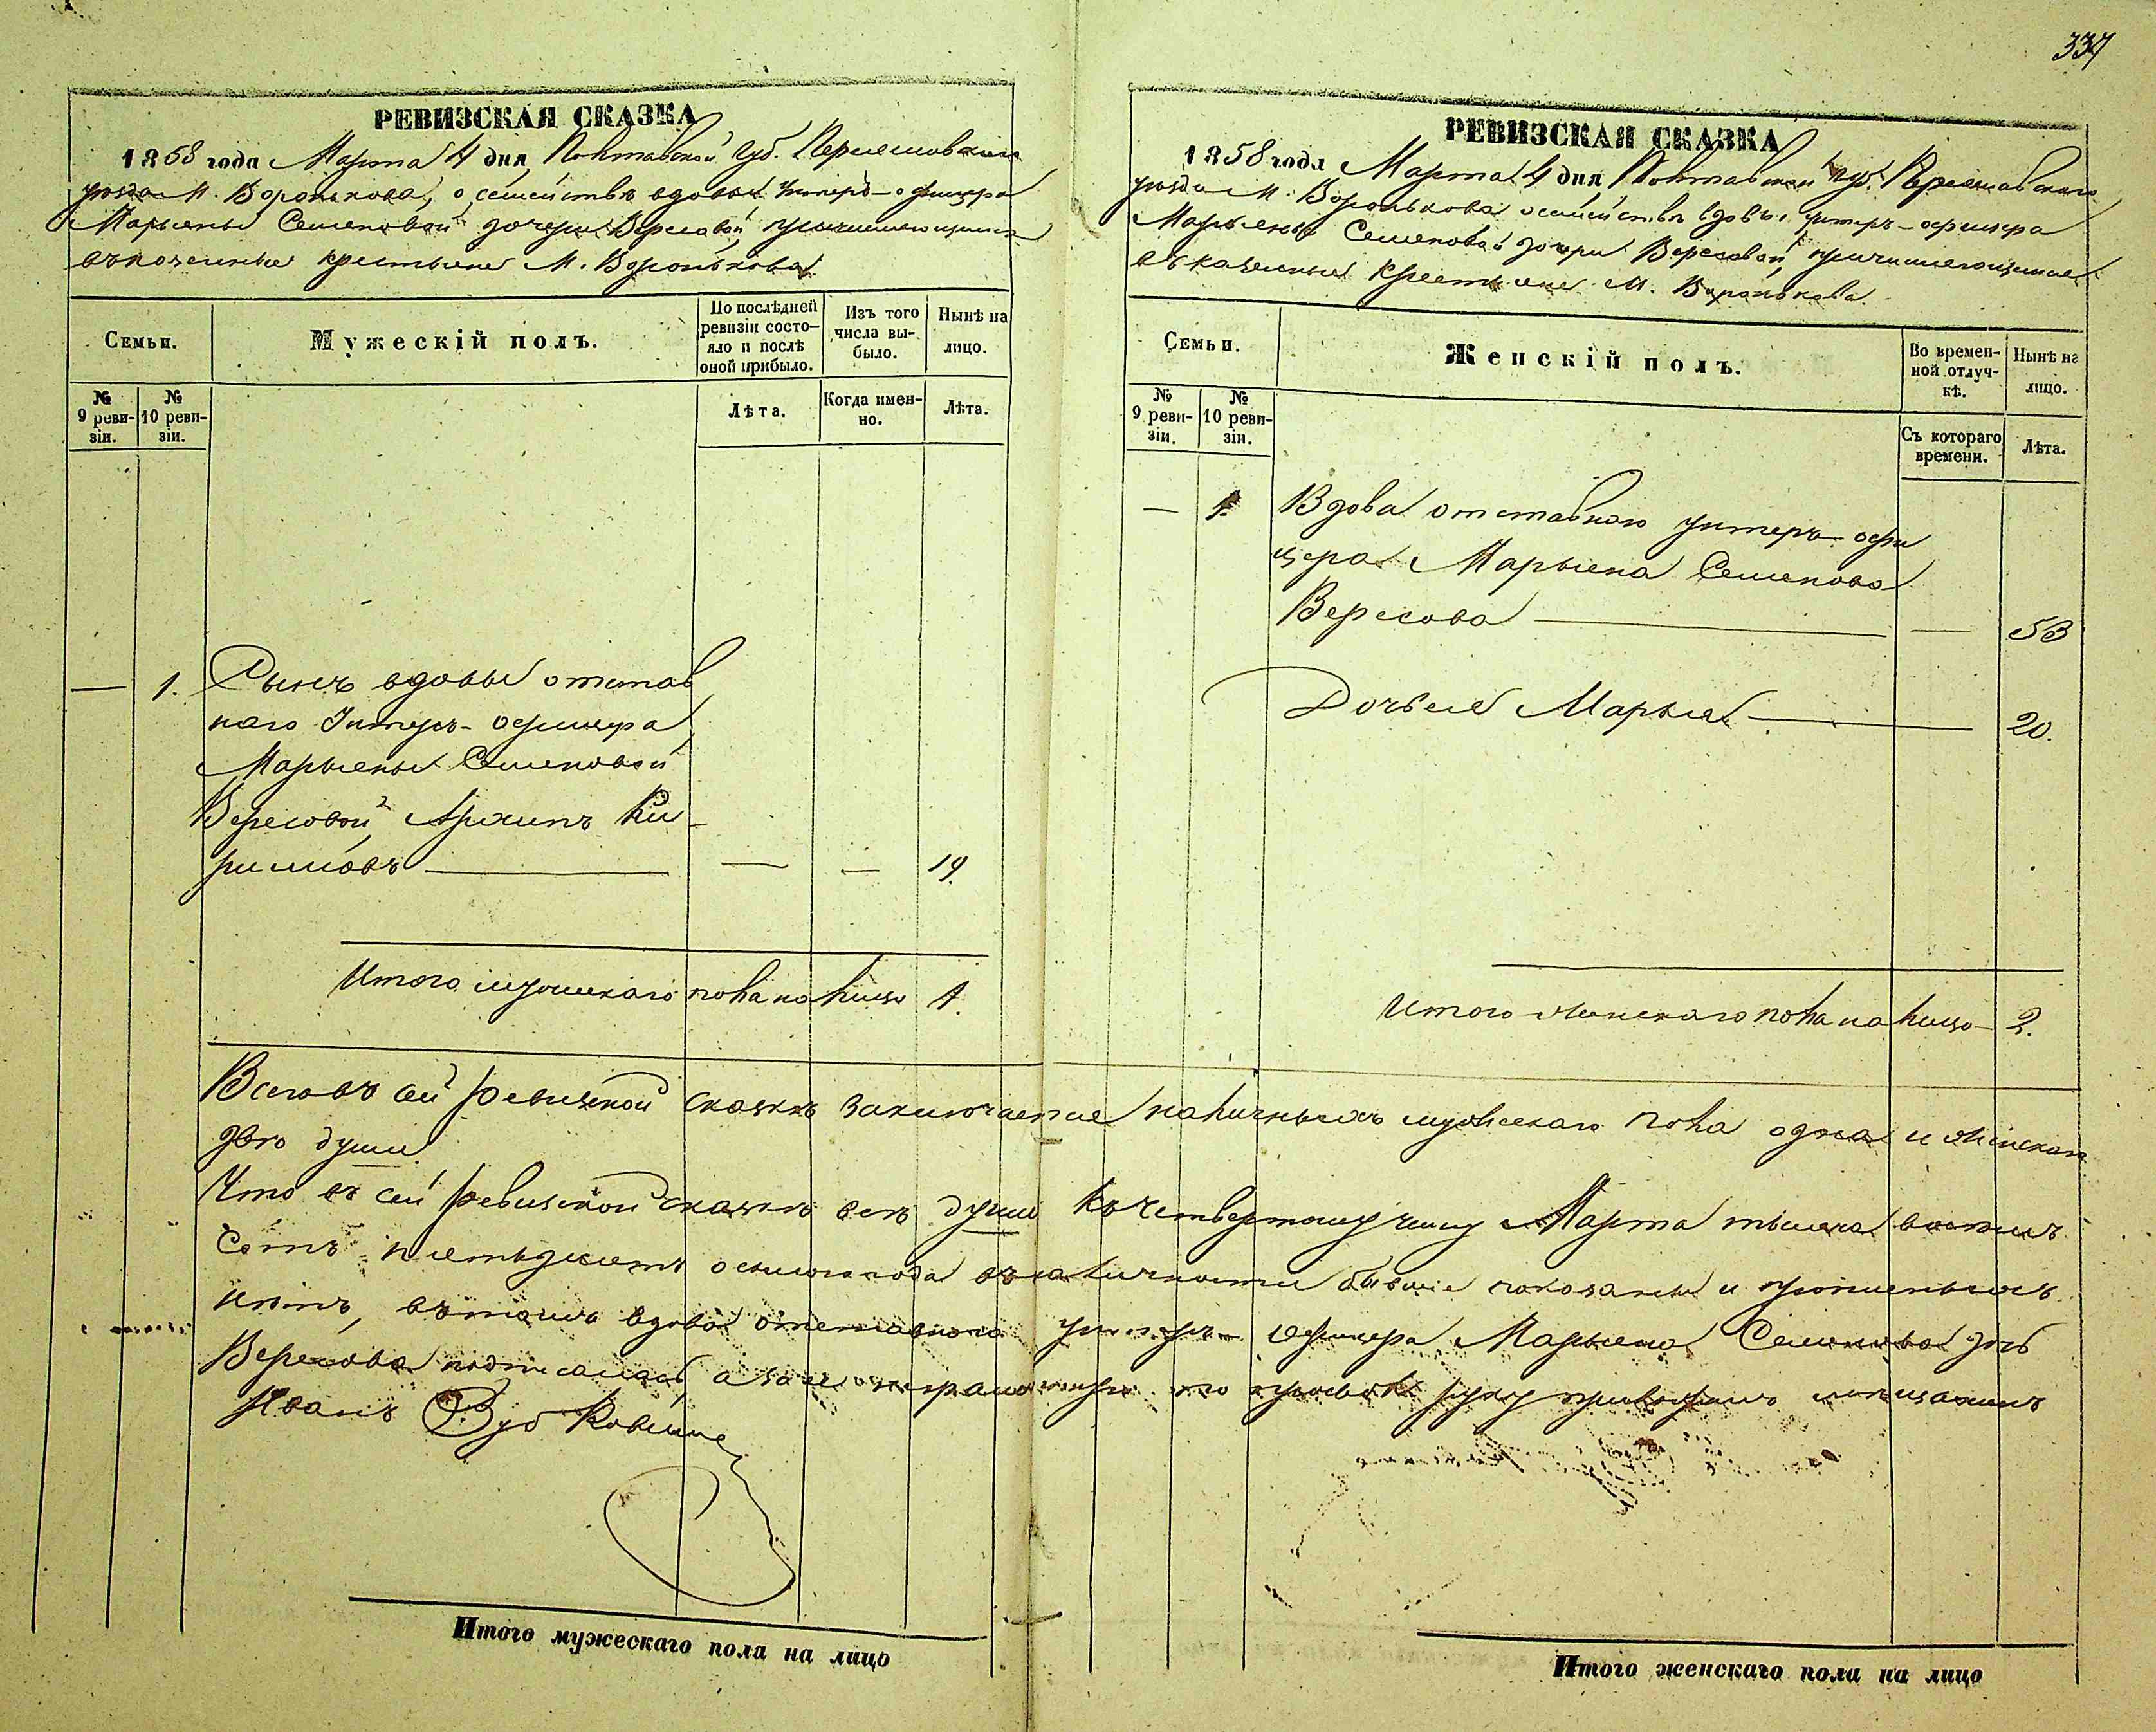 337
РЕВИЗСКАЯ СКАЗКА
1858 года Марта 4 дня, Полтавской Губ. Переяславскаго
уезда М. Воронькова, о семействѣ вдовы унтеръ-офицера
Марьяны Семеновой дочери Вересовой, причисляющиеся
въ казенные крестьяне М. Воронькова
Семьи.
Мужескій полъ.
По послѣдней ревизіи состояло и послѣ оной прибыло.
Изъ того числа выбыло.
Нынѣ на лицо.
№ 9 ревизіи.
№ 10 ревизіи.
Лѣта.
Когда именно.
Лѣта.
— 1. Сынъ вдовы отстав
наго Унтеръ-офицера
Марьяны Семеновой
Вересовой, Архипъ Ки-
риловъ — — — 19.
Итого мужескаго пола на лицо 1.
РЕВИЗСКАЯ СКАЗКА
1858 года, Марта 4 дня, Полтавской губ. Переяславскаго
уезда М. Воронькова о семействѣ вдовы унтеръ-офицера
Марьяны Семеновой дочери Вересовой, причисляющиеся
въ казенные крестьяне М. Воронькова.
Семьи.
Женскій полъ.
Во временной отлучкѣ.
Нынѣ на лицо.
№ 9 ревизіи.
№ 10 ревизіи.
Съ котораго времени.
Лѣта.
— 1. Вдова отставнаго унтеръ-офи
цера Марьяна Семенова
Вересова — — 53
Дочь ея Марья — 20.
Итого женскаго пола на лицо — 2.
Всего въ сей ревизской сказкѣ заключается наличныхъ мужескаго пола одна и женскаго
двѣ души
Что въ сей ревизской сказкѣ всѣ души къ четвертому числу Марта тысяча восемь
сотъ пятьдесятъ осмого года въ наличности бывшіе показаны и пропущенныхъ
нѣтъ, въ томъ вдова отставнаго унтеръ-офицера Марьяна Семенова дочь
Вересова подписалась а за ея неграмотную по просьбѣ руку приложилъ
Иванъ Зуб
Итого мужескаго пола на лицо
Итого женскаго пола на лицо